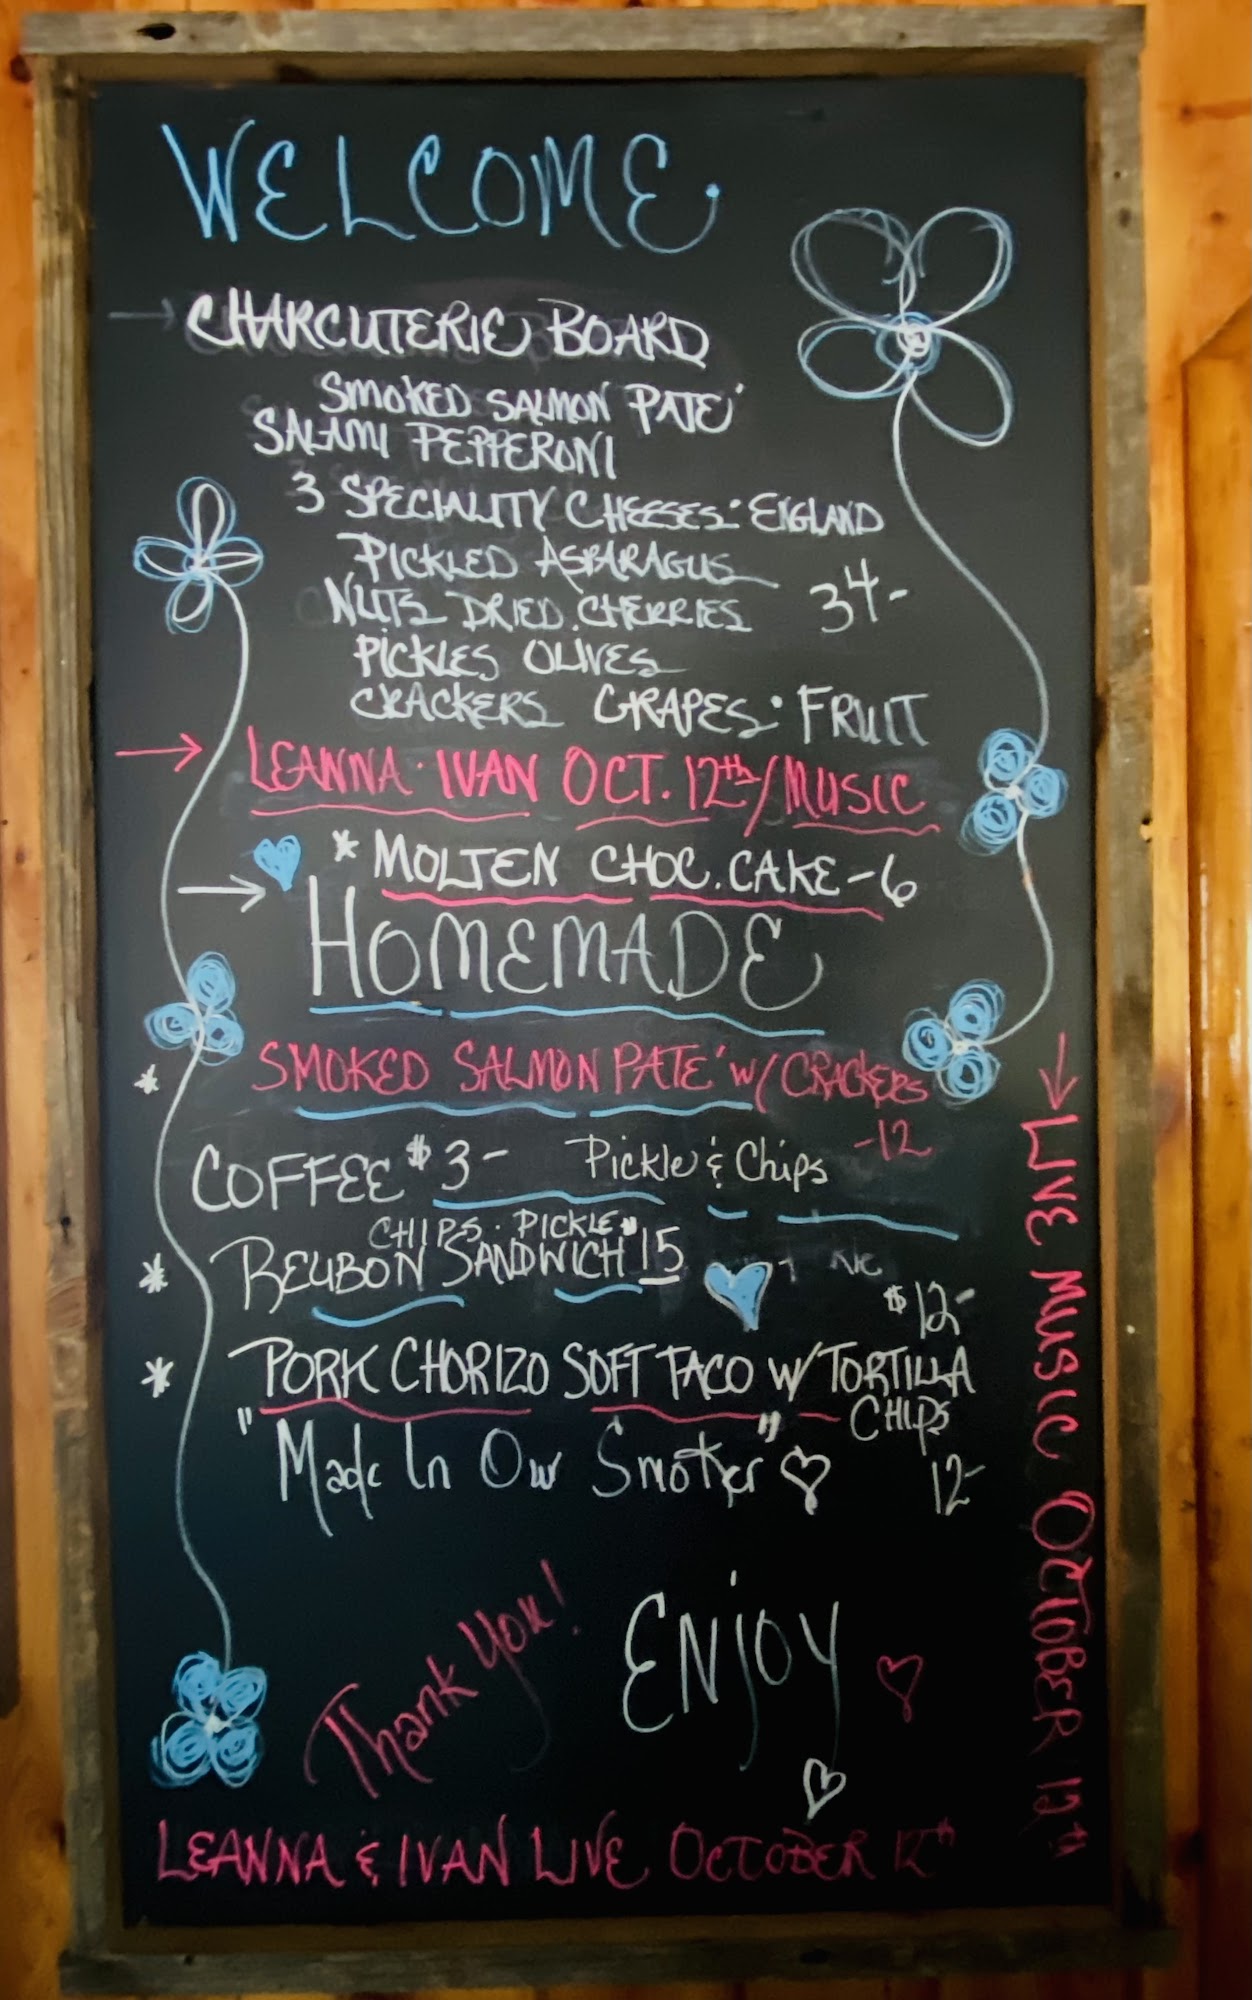 WELCOME.
→ CHARCUTERIE BOARD
SMOKED SALMON PATE'
SALAMI PEPPERONI
3 SPECIALITY CHEESES·ENGLAND
PICKLED ASPARAGUS
NUTS DRIED.CHERRIES 34-
PICKLES OLIVES
CRACKERS GRAPES·FRUIT
→ LEANNA·IVAN OCT. 12th/MUSIC
→ * MOLTEN CHOC.CAKE-6
HOMEMADE
* SMOKED SALMON PATE' W/ CRACKERS
-12
COFFEE $3- Pickle & Chips
CHIPS·PICKLE
* REUBON SANDWICH 15
$12-
* PORK CHORIZO SOFT TACO W/ TORTILLA
CHIPS
"Made In Our Smoker" 12-
Thank You!
ENJOY
LEANNA & IVAN LIVE OCTOBER 12th
→ LIVE MUSIC OCTOBER 12th